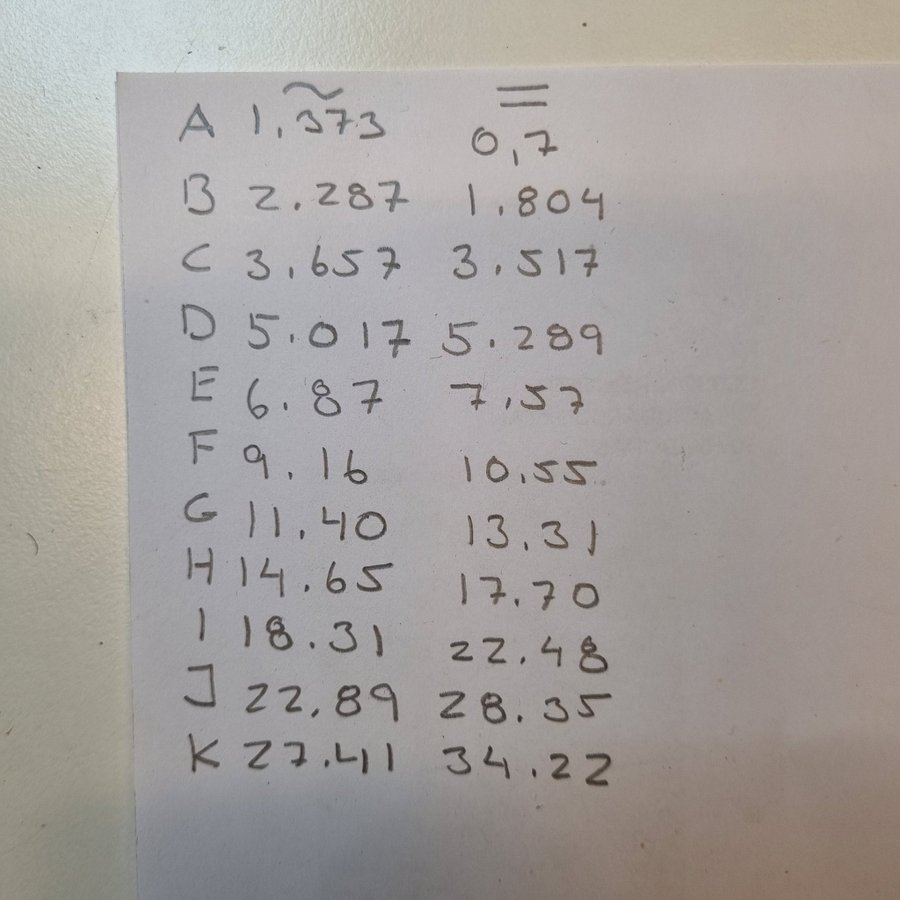 ~ =
A 1.373 0,7
B 2.287 1.804
C 3.657 3.517
D 5.017 5.289
E 6.87 7.57
F 9.16 10.55
G 11.40 13.31
H 14.65 17.70
I 18.31 22.48
J 22.89 28.35
K 27.41 34.22